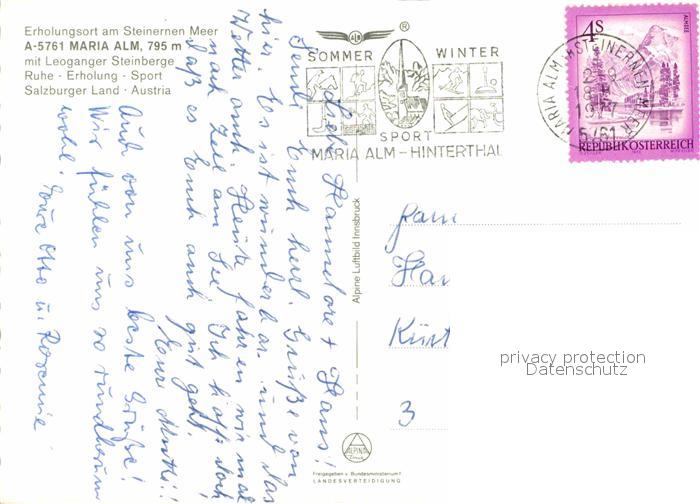 Erholungsort am Steinernen Meer
A-5761 MARIA ALM, 795 m
mit Leoganger Steinberge
Ruhe · Erholung · Sport
Salzburger Land · Austria
ALM
®
SOMMER WINTER
SPORT
MARIA ALM – HINTERTHAL
MARIA ALM AM STEINERNEN MEER
18
1977
5761
4S
ALMSEE
REPUBLIK ÖSTERREICH
Liebe Hannelore + Hans!
Sende Euch herzl. Grüße von
hier. Es ist wunderbar und das
Wetter auch. Heute fahren wir mal
nach Zell am See. Ich hoffe doch
daß es Euch auch gut geht.
Eure Mutti!!
Auch von uns beste Grüße!
Wir fühlen uns so rundherum
wohl! Eure Otto u. Rosemie
Alpine Luftbild Innsbruck
Fam
Han
Küst
3
privacy protection
Datenschutz
ALPINE
Freigegeben v. Bundesministerium f.
LANDESVERTEIDIGUNG